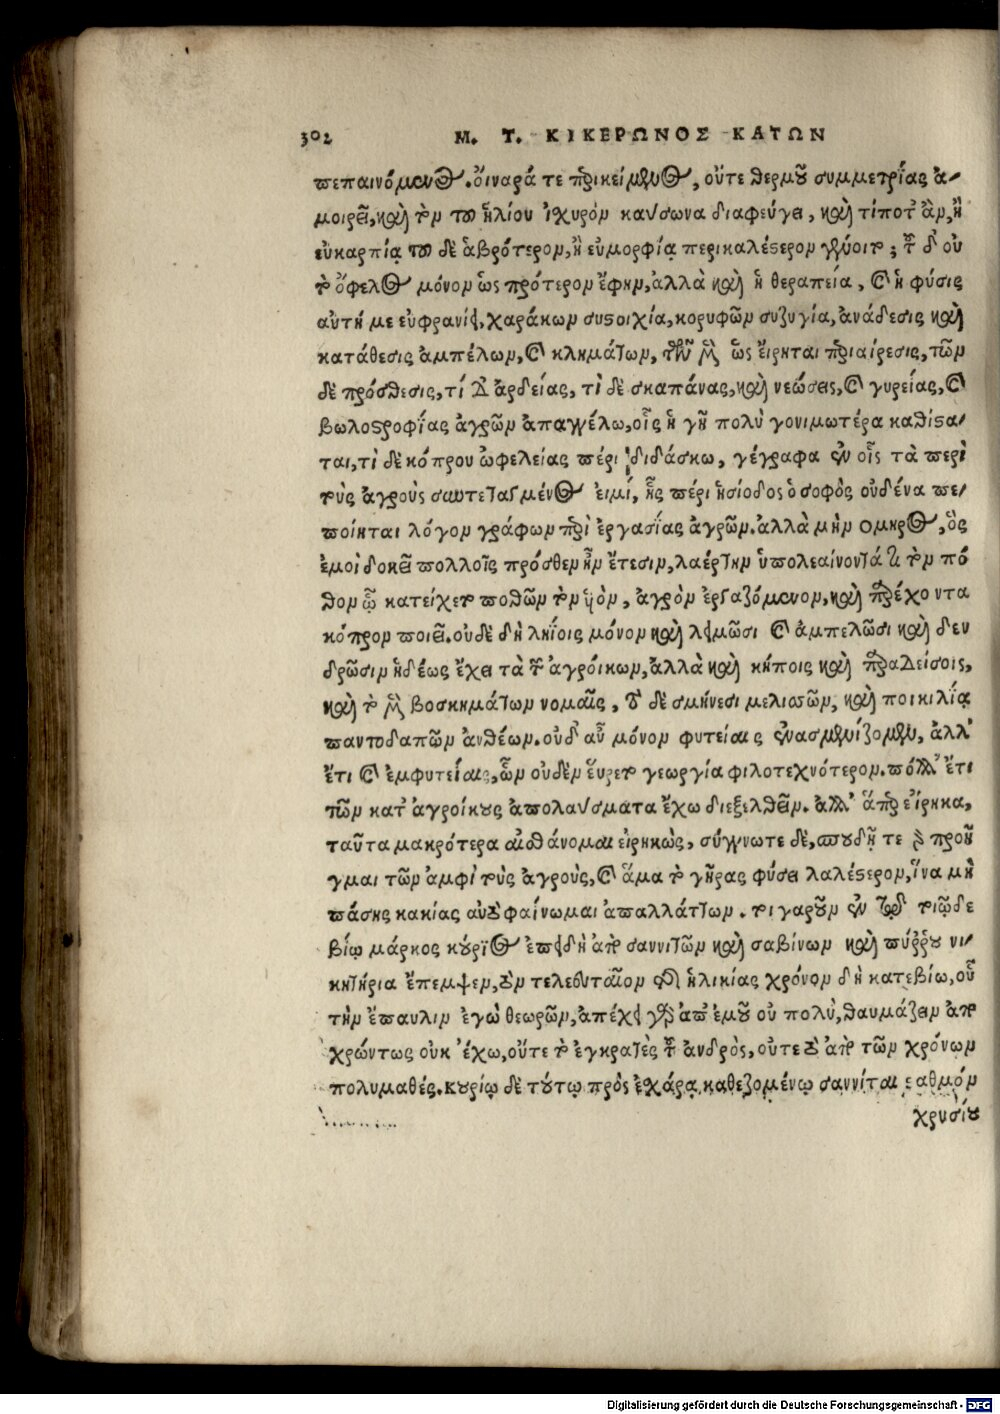 302 Μ. Τ. ΚΙΚΕΡΩΝΟΣ ΚΑΤΩΝ
πεπαινόμενος. οἴναρά τε περικείμενος, οὔτε θερμοῦ συμμετρίας ἀ-
μοιρεῖ, καὶ τὸν τοῦ ἡλίου ἰσχυρὸν καύσωνα διαφεύγει, καὶ τί ποτ' ἂν, ἢ
εὐκαρπίᾳ τὸ δὲ ἁβρότερον, ἢ εὐμορφίᾳ περικαλέστερον γένοιτο; τοῦ δ' οὐ
τὸ ὄφελος μόνον ὡς πρότερον ἔφην, ἀλλὰ καὶ ἡ θεραπεία, καὶ ἡ φύσις
αὐτή με εὐφρανεῖ, χαράκων συστοιχία, κορυφῶν συζυγία, ἀνάδεσις καὶ
κατάθεσις ἀμπέλων, καὶ κλημάτων, τῶν μὲν ὡς εἴρηται προαίρεσις, τῶν
δὲ πρόσθεσις, τί δ' ἀρδείας, τὶ δὲ σκαπάνας, καὶ νεώσεις, καὶ γυρείας, καὶ
βωλοστροφίας ἀγρῶν ἀπαγγέλω, οἷς ἡ γῆ πολὺ γονιμωτέρα καθίστα-
ται, τὶ δὲ κόπρου ὠφελείας πέρι διδάσκω, γέγραφα ἐν οἷς τὰ περὶ
τοὺς ἀγροὺς συντεταγμένος εἰμί, ἧς πέρι ἡσίοδος ὁ σοφὸς οὐδένα πε-
ποίηται λόγον γράφων περὶ ἐργασίας ἀγρῶν. ἀλλὰ μὴν ομηρος, ὃς
ἐμοὶ δοκεῖ πολλοῖς πρόσθεν ἦν ἔτεσιν, λαέρτην ὑπολεαίνοντά τὸν πό
θον ᾧ κατείχετο ποθῶν τὸν υἱὸν, ἀγρὸν ἐργαζόμενον, καὶ παρέχοντα
κόπρον ποιεῖ. οὐδὲ δὴ ληΐοις μόνον καὶ λειμῶσι καὶ ἀμπελῶσι καὶ δεν
δρῶσιν ἡδέως ἔχει τὰ τῶν ἀγροίκων, ἀλλὰ καὶ κήποις καὶ παραδείσοις,
καὶ τὸ μὲν βοσκημάτων νομαῖς, τοῦ δὲ σμήνεσι μελισσῶν, καὶ ποικιλίᾳ
παντοδαπῶν ἀνθέων. οὐδ' αὖ μόνον φυτείαις ἐνασμενίζομεν, ἀλλ'
ἔτι καὶ ἐμφυτείαις, ὧν οὐδὲν εὕρετο γεωργία φιλοτεχνότερον. πόλλ' ἔτι
τῶν κατ' ἀγροίκους ἀπολαύσματα ἔχω διεξελθεῖν. ἀλλ' ἅπερ εἴρηκα,
ταῦτα μακρότερα αἰσθάνομαι εἰρηκὼς, σύγγνωτε δὲ, σπουδῇ τε προῆ
γμαι τῶν ἀμφὶ τοὺς ἀγροὺς, καὶ ἅμα τὸ γῆρας φύσει λαλέστερον, ἵνα μὴ
πάσης κακίας αὐτὸ φαίνωμαι ἀπαλλάττων. τοιγαροῦν ἐν τούτῳ τῷδε
βίῳ μάρκος κούριος ἐπειδὴ ἀπὸ σαννιτῶν καὶ σαβίνων καὶ πύῤῥου νι-
κητήρια ἔπεμψεν, τὸν τελευταῖον τῆς ἡλικίας χρόνον δὴ κατεβίω, οὗ
τὴν ἔπαυλιν ἐγὼ θεωρῶν, ἀπέχει γὰρ ἀπ' ἐμοῦ οὐ πολὺ, θαυμάζειν ἀπο
χρώντως οὐκ ἔχω, οὔτε τὸ ἐγκρατὲς τοῦ ἀνδρὸς, οὔτε τὸ ἀπὸ τῶν χρόνων
πολυμαθές. κουρίῳ δὲ τούτῳ πρὸς ἐσχάρᾳ καθεζομένῳ σαννίται σταθμόν
χρυσίου
Digitalisierung gefördert durch die Deutsche Forschungsgemeinschaft - DFG